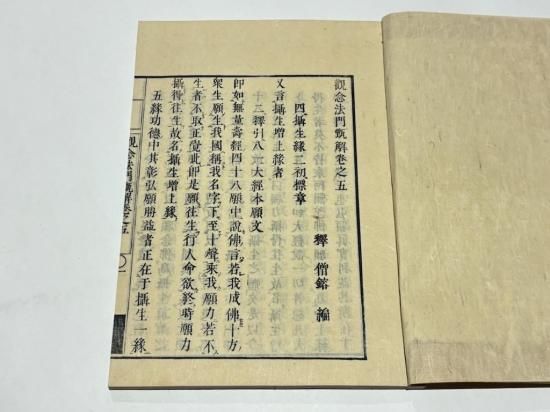 觀念法門甄解卷之五
釋僧鎔
四攝生緣三初標章
又言攝生增上緣者
十二釋引八大經本願文
即如無量壽經四十八願中說佛言若我成佛十方
衆生願生我國稱我名字下至十聲乘我願力若不
生者不取正覺此即是願往生行人命欲終時願力
攝得往生故名攝生增上緣
五緣功德中其彰弘願勝益者正在于攝生一緣
觀念法門甄解卷之五